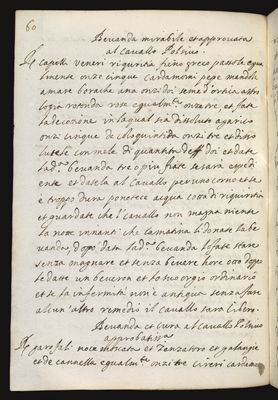 60
Bevanda mirabile et approvata
al Cavallo Polsivo
Capilli veneri riguritia fieno greco passole equa
lmente onze cinque Cardamomi pege mandole
amare borache ana onze doi seme d'ortica aristo
logia rotonda rose equalmte onze tre, et fate
la decotione in la qual sia disoluto agarico
onzi cinque de coloquintida onzi tre et disso
lutele con mele di quantità de doi et date
la da bevanda tre o piu fiate se sara expedi
ente et datela al Cavallo per uno corno et se
è troppo dura ponetece acqua cotta di rigurita
et guardate che'l cavallo non magna niente
la notte innanti che la matina li donate la be
vanda, dopo deta bevanda lo fate stare
senza magnare et senza bevere hore otto dopo
se datte un beveron et so suo orgio ordinario
et se la infermità non è antiqua senza fare
alcun' altro remedio il cavallo sara libero.
Bevanda et Cura al Cavallo Polsivo
approbatissa
garofali noce moscata et Zenzavero et galangie
et de cannella equalmte onzi tre Civeri cardamo